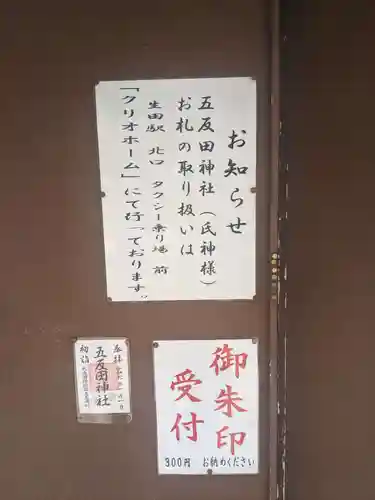 お知らせ
五反田神社（氏神様）
お札の取り扱いは
生田駅 北口 タクシー乗り場 前
「クリオホーム」にて行っております。
五反田神社
初詣
御朱印
受付
300円 お納めください